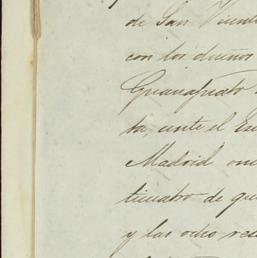 de San Vicente
con los dueños
Guanajuato
ta, ante el Es
Madrid on
ticuatro de qu
y las ocho